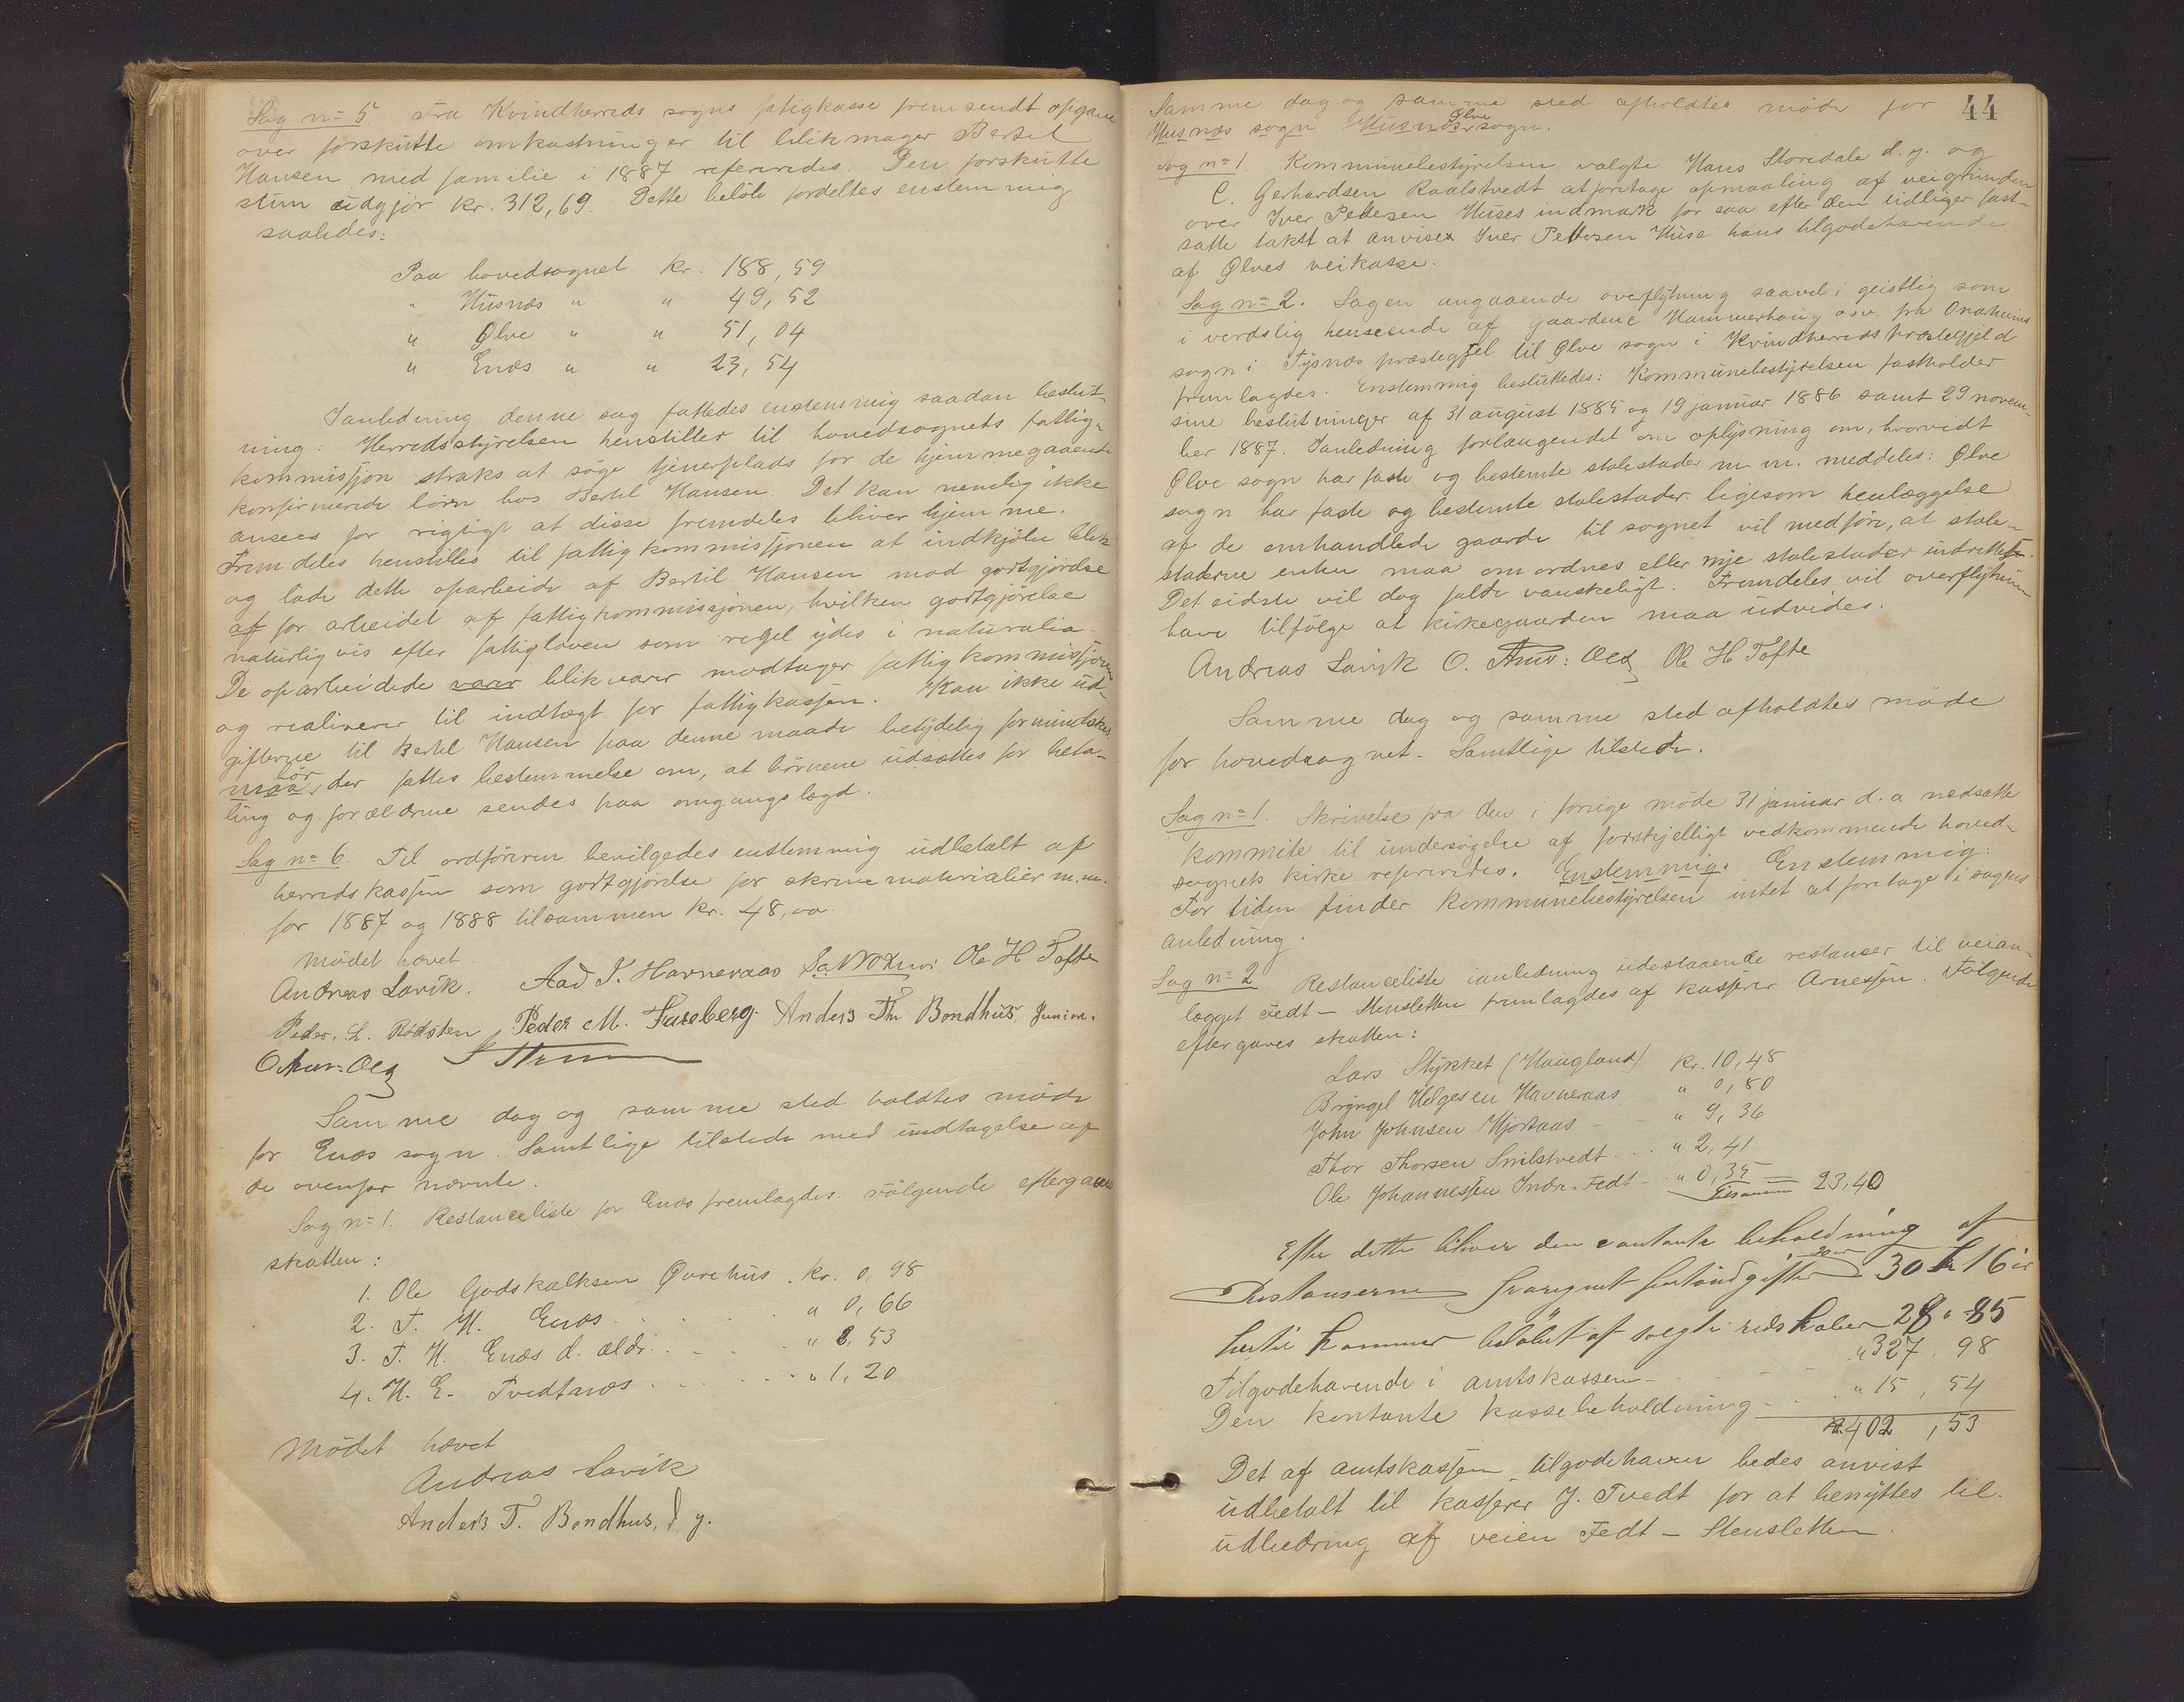 Sag n= 5 Fra Kvindherreds sogns fatigkasse fremsendt opgave
over forskutte omkostninger til blikmager Bertel
Hansen med familie i 1887 refereredes. Den forskutte
sum udgjør kr. 312,69. Dette beløb fordeltes enstemmig
saaledes:
Paa hovedsognet kr. 188,59
" Husnæs " " 49,52
" Ølve " " 51,04
" Enæs " " 23,54
Ianledning denne sag fattedes enstemmig saadan beslut-
ning: Herredsstyrelsen henstiller til hovedsognets fattig-
kommissjon straks at søge tjenerplads for de hjemmegaaende
konfirmerede børn hos Bertel Hansen. Det kan nemlig ikke
ansees for rigtigt at disse fremdeles bliver hjemme.
Fremdeles henstilles til fattigkommissjonen at indkjøbe blik
og lade dette oparbeide af Bertil Hansen mod godtgjørelse
af for arbeidet af fattigkommissjonen, hvilken godtgjørelse
naturligvis efter fattigloven som regel ydes i naturalia.
De oparbeidede varer blikvarer modtager fattigkommissjonen
og realiserer til indtægt for fattigkassen. Kan ikke ud-
gifterne til Bertel Hansen paa denne maade betydelig formindskes
maa bør der fattes bestemmelse om, at børnene udsættes for beta-
ling og forældrene sendes paa omgangslægd.
Sag n= 6. Til ordføreren bevilgedes enstemmig udbetalt af
herredskassen som godtgjørelse for skrivematerialier m.m.
for 1887 og 1888 tilsammen kr. 48,00.
Mødet hævet
Andreas Lavik. Aad J. Havneraas Ole H Tofte
Peder. L. Rødsten Peder M. Fureberg. Anders Th Bondhus Junior.
Samme dag og samme sted holdtes møde
for Enæs sogn. Samtlige tilstede med undtagelse af
de ovenfor nævnte.
Sag n= 1. Restanceliste for Enæs fremlagdes. Følgende eftergaves
skatten:
1. Ole Godskalksen Øvrehus . kr. 0,98
2. T. H. Enæs . . . . " 0,66
3. T. H. Enæs d. ældr. . . . " 2,53
4. H. E. Tvedtnæs . . . . " 1,20
Mødet hævet
Andreas Lavik
Anders T. Bondhus, d. y.
44
Samme dag og samme sted afholdtes møde for
Husnæs sogn Husnæs Ølve sogn.
Sag n= 1 Kommunebestyrelsen valgte Hans Storedale d. y. og
C. Gerhardsen Raalstvedt at foretage opmaaling af veigrunden
over Iver Pedersen Huses indmark for saa efter den tidliger fast-
satte takst at anvises Iver Pettersen Huse hans tilgodehavende
af Ølves veikasse.
Sag n= 2. Sagen angaaende overflytning saavel i geistlig som
i verdslig henseende af gaardene Hammerhaug osv. fra Onaheims
sogn i Tysnæs præstegjel til Ølve sogn i Kvindherreds præstegjeld
fremlagdes. Enstemmig besluttedes: Kommunebestyrelsen fastholder
sine beslutninger af 31 august 1885 og 19 januar 1886 samt 29 novem-
ber 1887. Ianledning forlangendet om oplysning om, hvorvidt
Ølve sogn har faste og bestemte stolestader m. m. meddeles: Ølve
sogn har faste og bestemte stolestader ligesom henlæggelse
af de omhandlede gaarde til sognet vil medføre, at stole-
staderne enten maa omordnes eller nye stolestader indrettes.
Det sidste vil dog falde vanskeligt. Fremdeles vil overflytning
have tilfølge at kirkegaarden maa udvides.
Andreas Lavik Ole H Tofte
Samme dag og samme sted afholdtes møde
for hovedsognet. Samtlige tilstede.
Sag n= 1. Skrivelse fra den i forrige møde 31 januar d. a nedsatte
kommite til undersøgelse af forskjelligt vedkommende hoved-
sognets kirke refereredes. Enstemmig. Enstemmig:
For tiden finder kommunebestyrelsen intet at foretage i sagens
anledning.
Sag n= 2 Restanceliste ianledning udestaaende restanser til veian-
lægget Fedt - Stensletten fremlagdes af kasserer Arnessen. Følgende
eftergaves skatten:
Lars Stykket (Haugland) kr. 10,48
Bryngel Helgesen Havneraas " 0,80
John Johnsen Hjortaas - - " 9,36
Thor Thorsen Snilstvedt - . . " 2,41
Ole Johannessen Indre-Fedt - . " 0,35
Tilsammen 23,40
Efter dette bliver den contante beholdning af
Restanserne fraregnet 30 kr 16 ør
hertil kommer beløbet af solgte redskaber 28 " 85
Tilgodehavende i amtskassen - - - " 327, 98
Den kontante kassebeholdning - - . " 15, 54
kr. 402, 53
Det af amtskassen tilgodehaven bedes anvist
udbetalt til kasserer J. Tvedt for at benyttes til
udbedring af veien Fedt - Stensletten.